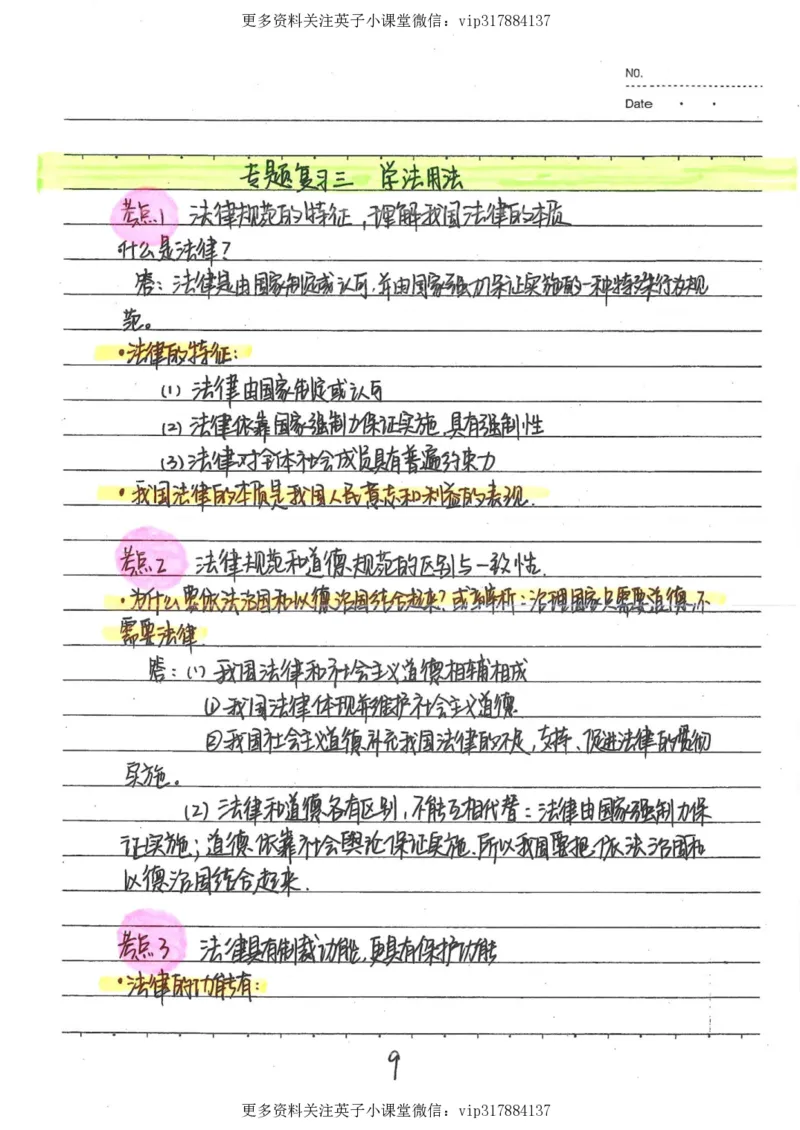 更多资料关注英子小课堂微信：vip317884137
NO.
Date
专题复习三 学法用法
考点1 法律规范的特征，理解我国法律的本质
什么是法律？
答：法律是由国家制定或认可，并由国家强力保证实施的一种特殊行为规
范。
·法律的特征：
(1) 法律由国家制定或认可
(2) 法律依靠国家强制力保证实施，具有强制性
(3) 法律对全体社会成员具有普遍约束力
·我国法律的本质是我国人民意志和利益的表现.
考点2 法律规范和道德规范的区别与一致性.
·为什么要依法治国和以德治国结合起来？或辨析：治理国家只需要道德，不
需要法律.
答：(1) 我国法律和社会主义道德相辅相成
①我国法律体现并维护社会主义道德.
②我国社会主义道德补充我国法律的不足，支持、促进法律的贯彻
实施。
(2) 法律和道德各有区别，不能互相代替：法律由国家强制力保
证实施；道德依靠社会舆论保证实施.所以我国要把依法治国和
以德治国结合起来.
考点3 法律具有制裁功能，更具有保护功能
·法律的功能有：
9
更多资料关注英子小课堂微信：vip317884137